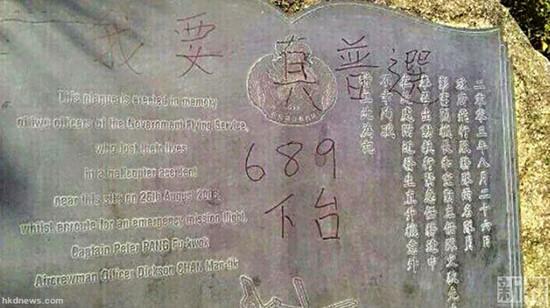 我要真普選
689
下台
This plaque is erected in memory
of two officers of the Government Flying Service,
who lost their lives
in a helicopter accident
near this site on 26th August 2003,
whilst enroute for an emergency mission flight.
Captain Peter PANG Fu-kwok
Aircrewman Officer Dickson CHAN Man-tik
二零零三年八月二十六日
政府飛行服務隊兩名隊員
彭富國機長和空勤主任陳文狄
奉召出動執行緊急任務途中
附近發生直升機意外
不幸殉職
特立此為記
hkdnews.com